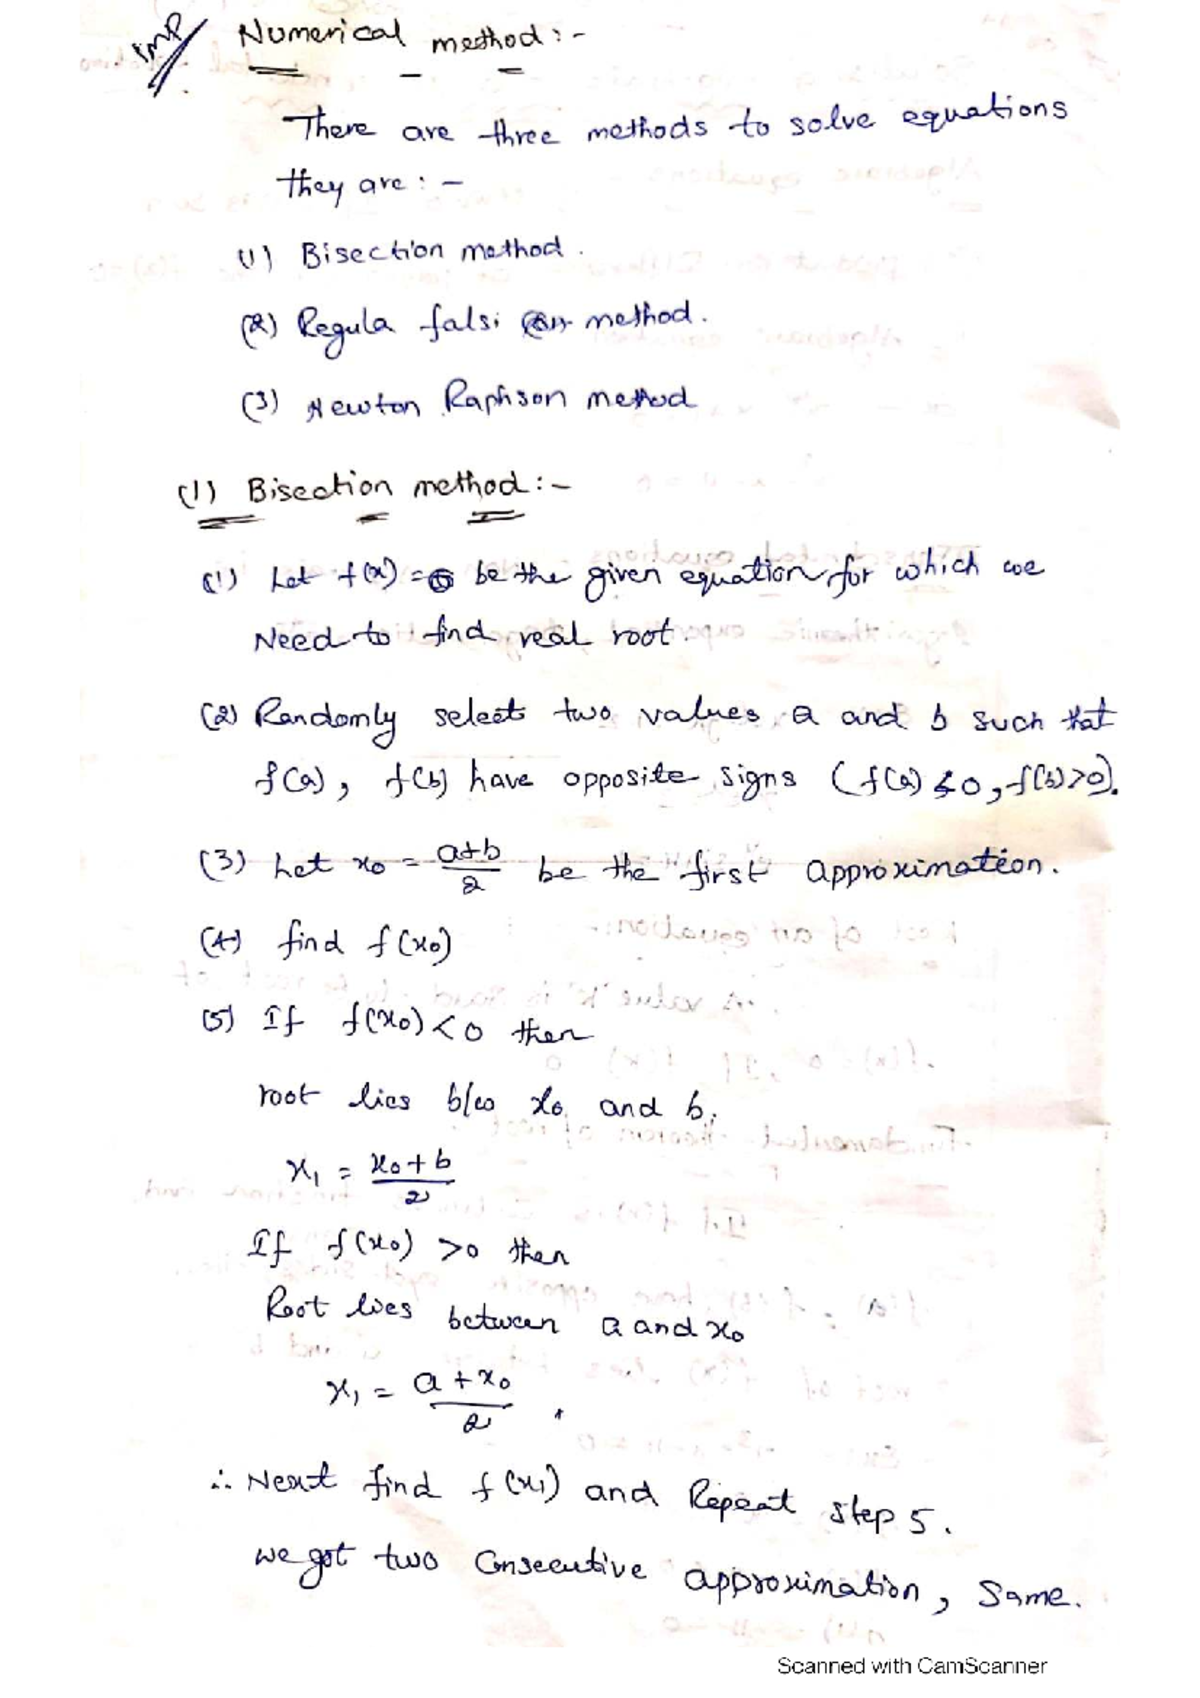 IMP Numerical method :-
There are three methods to solve equations
they are : -
(1) Bisection method.
(2) Regula falsi method.
(3) Newton Raphson method
(1) Bisection method :-
(1) Let f(x) = 0 be the given equation, for which we
Need to find real root.
(2) Randomly selects two values a and b such that
f(a), f(b) have opposite signs (f(a) < 0, f(b) > 0).
(3) Let x₀ = a+b/2 be the first approximation.
(4) find f(x₀)
(5) If f(x₀) < 0 then
root lies b/w x₀ and b.
x₁ = x₀+b/2
If f(x₀) > 0 then
Root lies between a and x₀
x₁ = a+x₀/2 .
∴ Next find f(x₁) and Repeat step 5.
we got two Consecutive approximation, Same.
Scanned with CamScanner